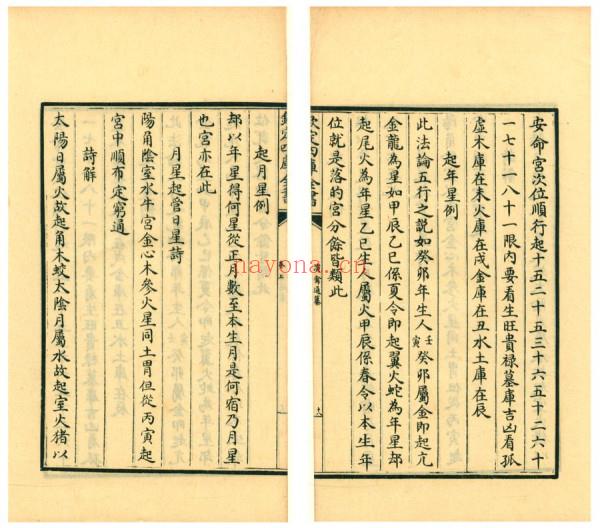 安命宮次位順行起十五二十五三十六五十二六十
一七十一八十一限内要看生旺貴祿墓庫吉凶看孤
虛木庫在未火庫在戌金庫在丑水土庫在辰
起年星例
此法論五行之說如癸卯年生人壬寅癸卯屬金即起亢
金龍為星如甲辰乙巳係夏令即起翼火蛇為年星却
起尾火為年星乙巳生人屬火甲辰係春令以本生年
位就是落的宮分餘皆類此
欽定四庫全書
演禽通纂
欽定四庫全書
起月星例
却以年星得何星從正月數至本生月是何宿乃月星
也宮亦在此
月星起管日星詩
陽角陰室水牛宮金心木參火星同土胃但從丙寅起
宮中順布定窮通
詩解
太陽日屬火故起角木蛟太陰月屬水故起室火猪以
nayona.cn